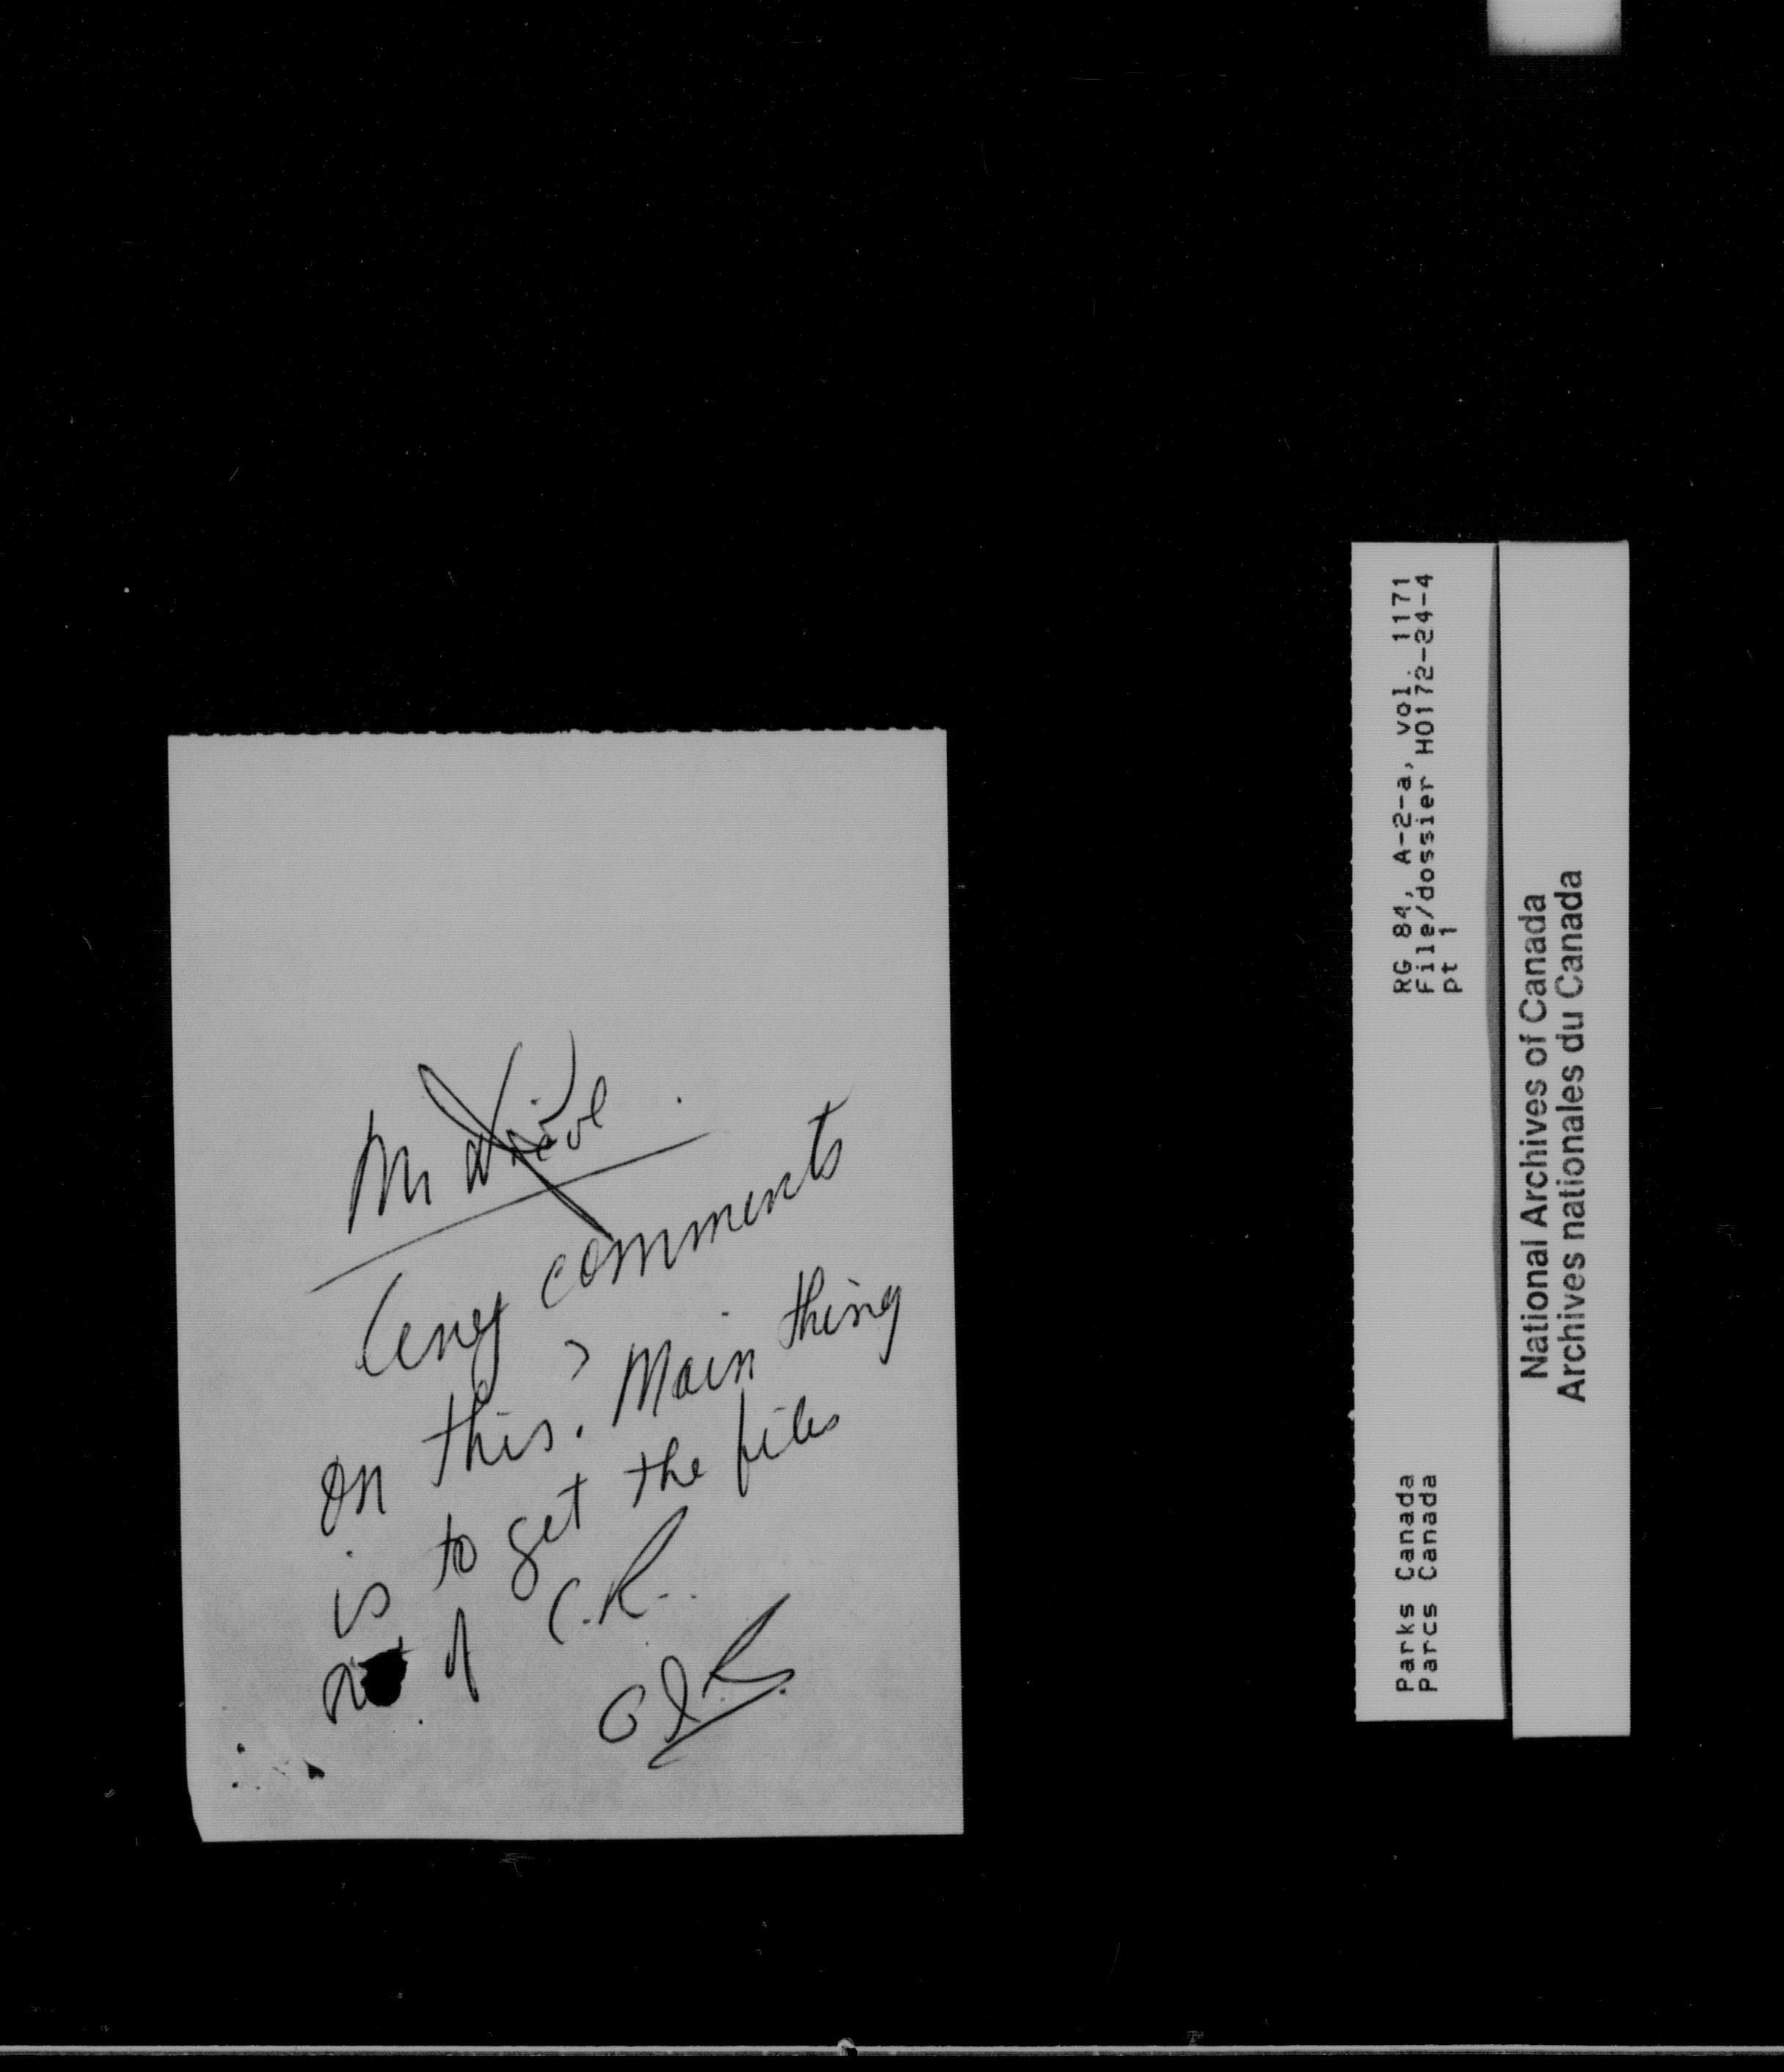 Mr
Any comments
on this? Main thing
is to get the files
of C.R.
RG 84, A-2-a, vol. 1171
File/dossier H0172-24-4
pt 1
Parks Canada
Parcs Canada
National Archives of Canada
Archives nationales du Canada